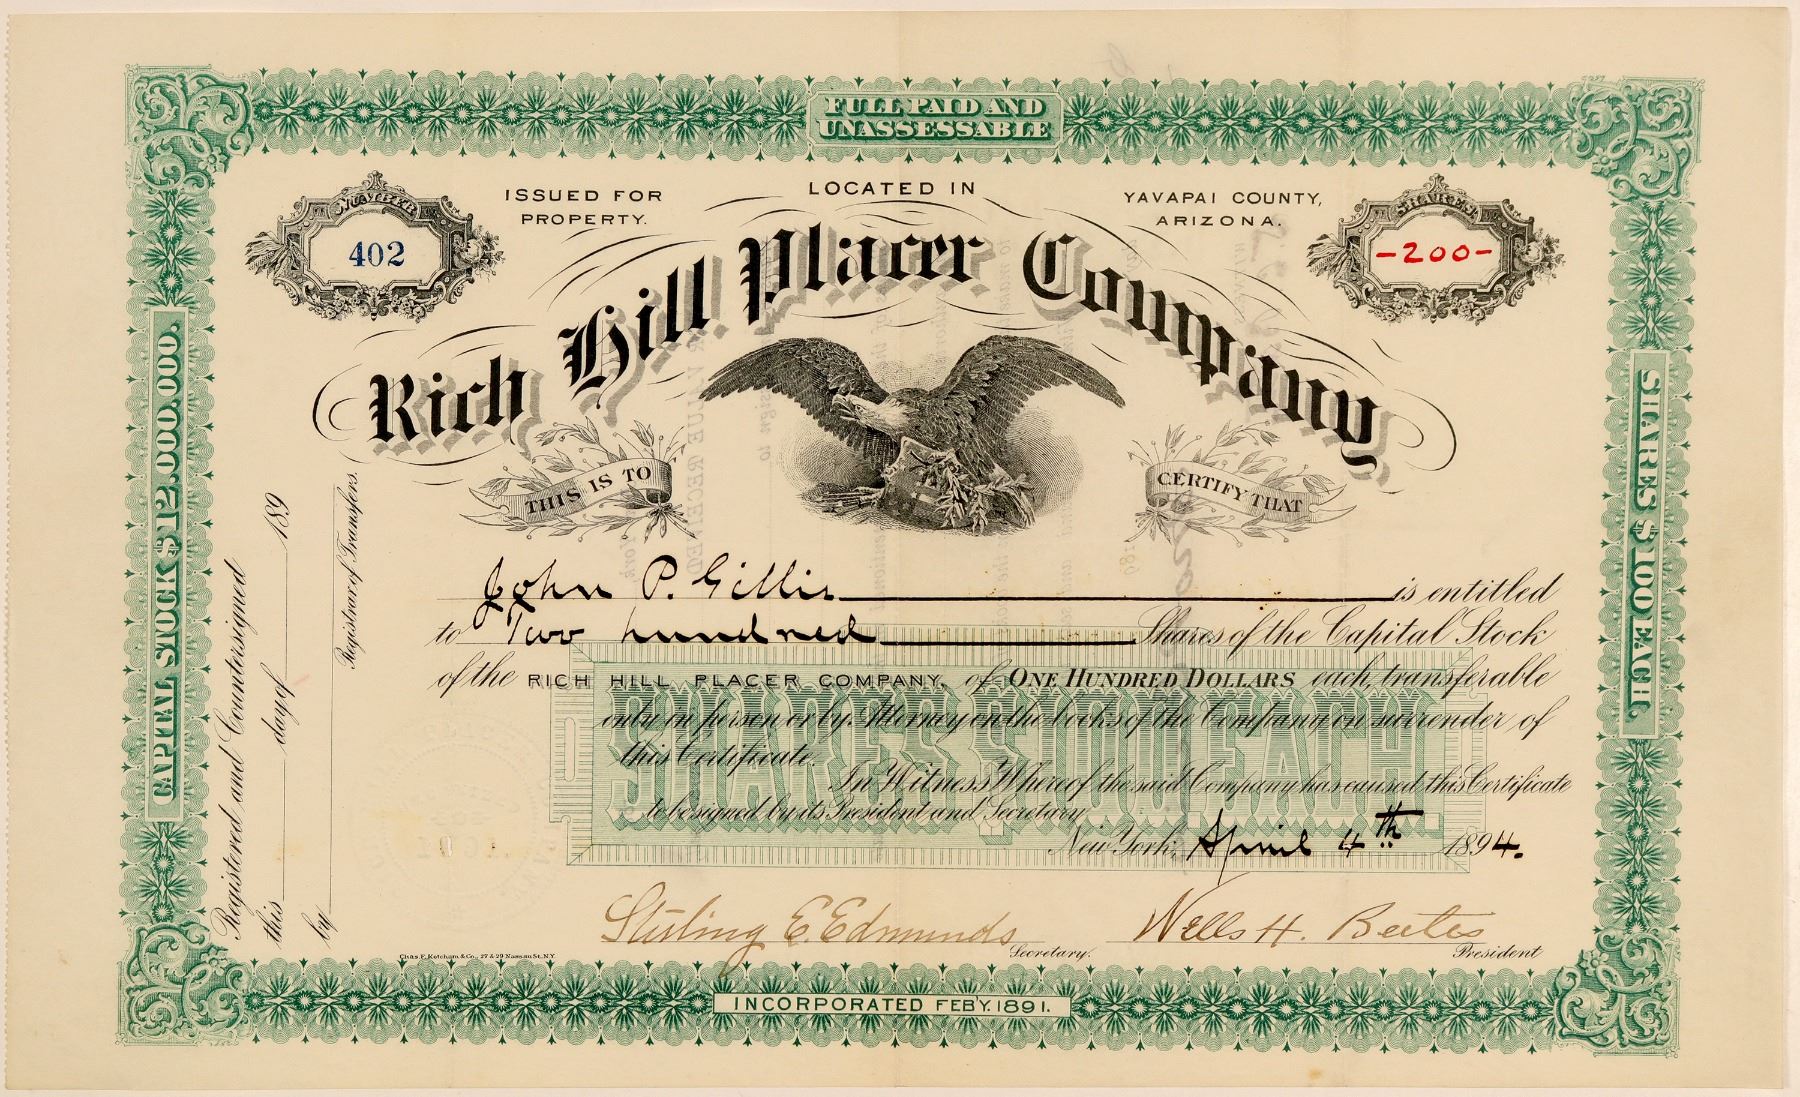 FULL PAID AND
UNASSESSABLE
NUMBER
402
ISSUED FOR
PROPERTY.
LOCATED IN
YAVAPAI COUNTY,
ARIZONA.
SHARES
-200-
Rich Hill Placer Company
THIS IS TO
CERTIFY THAT
John P. Gillis is entitled
to Two hundred Shares of the Capital Stock
of the RICH HILL PLACER COMPANY, of ONE HUNDRED DOLLARS each, transferable
only in person or by Attorney on the books of the Company on surrender of
this Certificate.
In Witness Whereof the said Company has caused this Certificate
to be signed by its President and Secretary
New York, April 4th 1894.
SHARES $100 EACH.
Stirling E. Edmunds
Secretary.
Wells H. Beetes
President
Chas. F. Ketcham & Co., 27 & 29 Nassau St., N.Y.
INCORPORATED FEB'Y. 1891.
CAPITAL STOCK $12,000,000.
SHARES $100 EACH.
Registered and Countersigned
this day of 189
by
Registrar of Transfers.